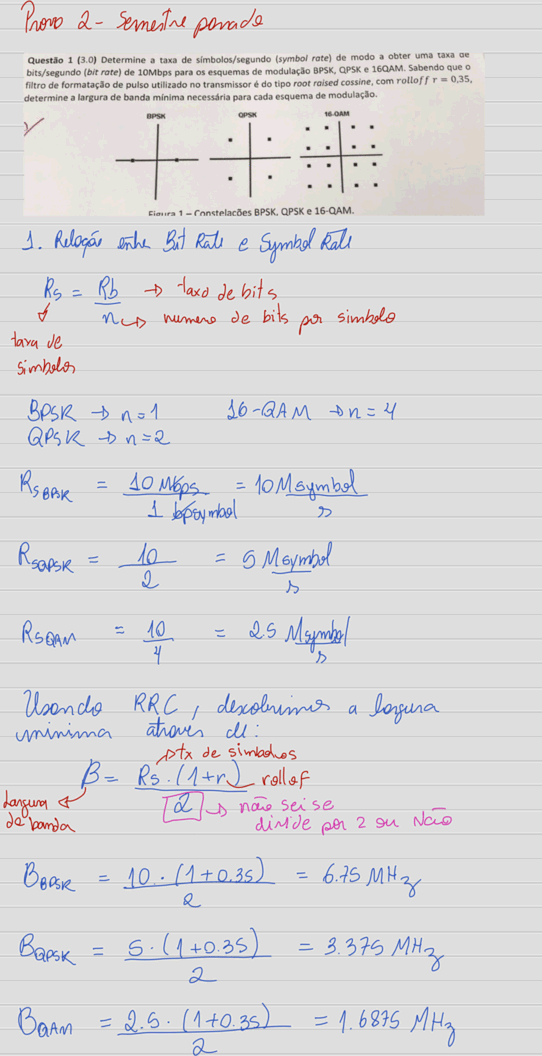 Prova 2 - Semestre passado
Questão 1 (3.0) Determine a taxa de símbolos/segundo (symbol rate) de modo a obter uma taxa de
bits/segundo (bit rate) de 10Mbps para os esquemas de modulação BPSK, QPSK e 16QAM. Sabendo que o
filtro de formatação de pulso utilizado no transmissor é do tipo root raised cossine, com rolloff r = 0,35,
determine a largura de banda mínima necessária para cada esquema de modulação.
BPSK QPSK 16-QAM
Figura 1 – Constelações BPSK, QPSK e 16-QAM.
1. Relação entre Bit Rate e Symbol Rate
Rs = Rb → taxa de bits
n → numero de bits por simbolo
taxa de
simbolos
BPSK → n = 1 16-QAM → n = 4
QPSK → n = 2
RSBPSK = 10 Mbps = 10 Msymbol
1 bpsymbol s
RSQPSK = 10 = 5 Msymbol
2 s
RSQAM = 10 = 2.5 Msymbol
4 s
Usando RRC, descobrimos a largura
minima atraves de:
→ tx de simbolos
B = Rs . (1+r) rollof
2 → não sei se
divide por 2 ou não
Largura
de banda
BBPSK = 10 . (1+0.35) = 6.75 MHz
2
BQPSK = 5 . (1+0.35) = 3.375 MHz
2
BQAM = 2.5 . (1+0.35) = 1.6875 MHz
2